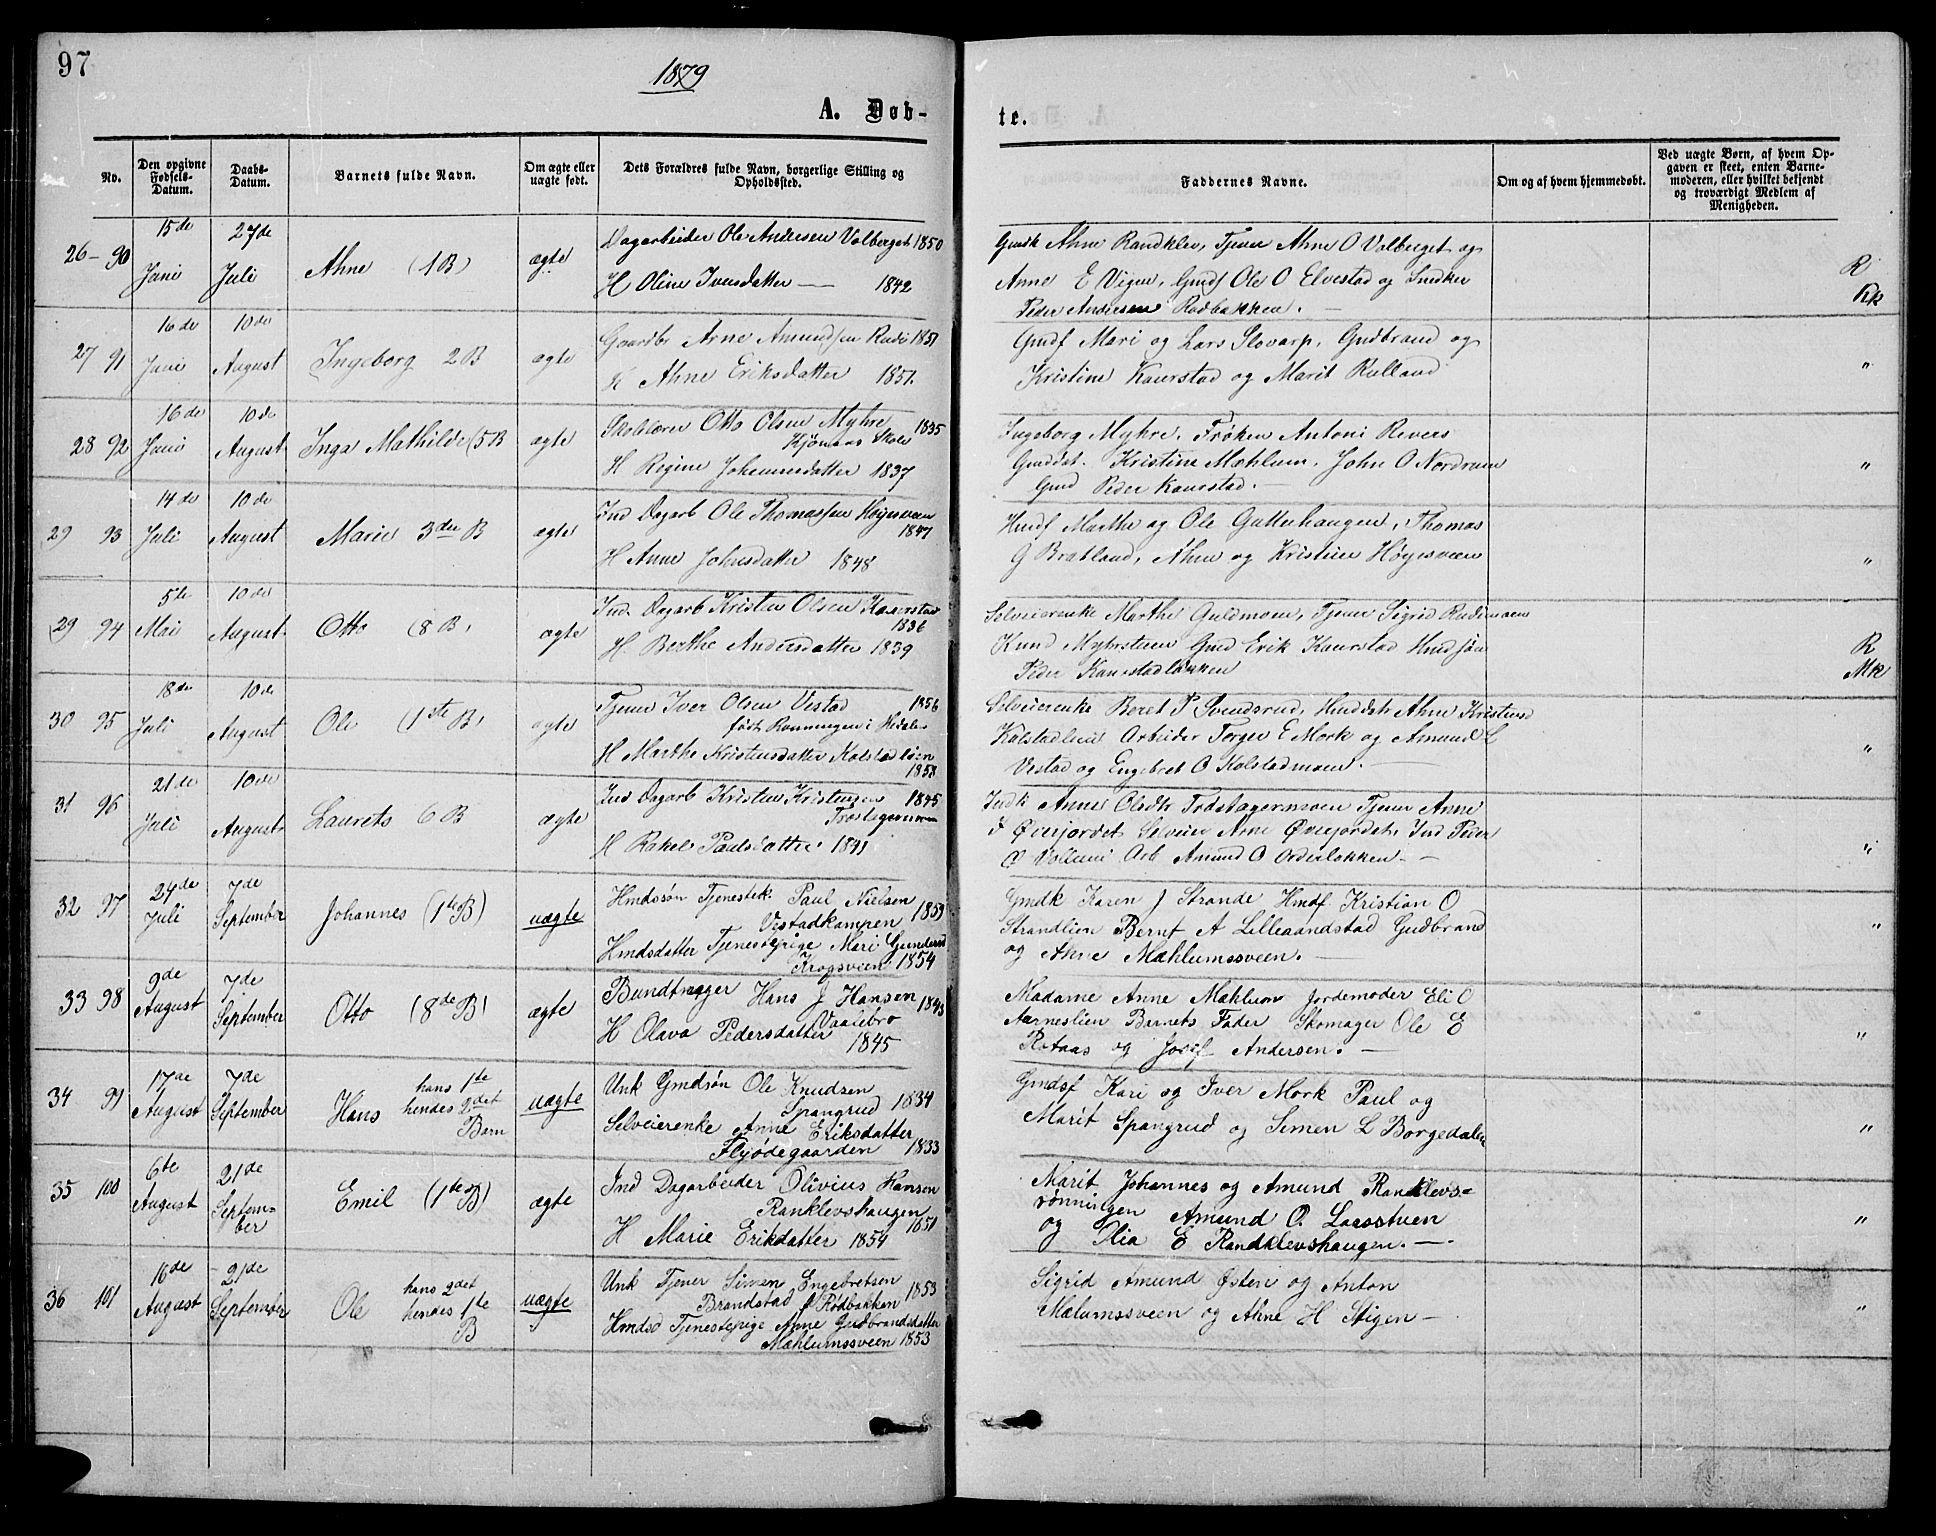 97
1879
A. Døb-
te.
No.
Den opgivne Fødsels-Datum.
Daabs-Datum.
Barnets fulde Navn.
Om ægte eller uægte født.
Dets Forældres fulde Navn, borgerlige Stilling og Opholdssted.
Faddernes Navne.
Om og af hvem hjemmedøbt.
Ved uægte Børn, af hvem Op-
gaven er skeet, enten Barne-
moderen, eller hvilket bekjendt
og troværdigt Medlem af
Menigheden.
26 - 90 15de Juni 27de Juli Ahne (1 B) ægte
Dagarbeider Ole Andersen Valberget 1850
H Oline Iversdatter — 1842
Gmdk Ahne Randklev, Tjener Ahne O Valberget og
Anne E Vigen, Gmdf Ole O Elvestad og Snedker
Peder Andersen Rødbakken. —
R
Rk
27 91 16de Juni 10de August Ingeborg 2 B ægte
Gaardbr Arne Amundsen Rudi 1851
K Ahne Eriksdatter 1851.
Gmdf Mari og Lars Flovarp, Gudbrand og
Kristine Kaurstad og Marit Rulland
"
28 92 16de Juni 10de August Inga Mathilde (5 B ægte
Skolelærer Otto Olsen Myhre 1835
Kjønaas Skole
H Regine Johannesdatter 1837
Ingeborg Myhre, Frøken Antoni Revers
Gmddt. Kristine Mæhlum, John O Nordrum
Gmd Peder Kaurstad. —
"
29 93 14de Juli 10de August Marie 3die B ægte
Ind Dagarb Ole Thomassen Høgesveen
1847
H Anne Johnsdatter 1848
Hmdf Marthe og Ole Gutterhaugen, Thomas
G Brætland, Ahne og Kristian Høgesveen
"
29 94 5te Mai 10de August Otto (8 B, ægte
Ind. Dagarb Kristen Olsen Kaurstad
1836
H. Berthe Andersdatter 1839
Selveierenke Marthe Guldmoen, Tjener Sigrid Rudimoen
Knud Myhrstuen Gmd Erik Kaurstad Hmdsøn
Peder Kaurstadløkken
R
Mk
30 95 18de Juli 10de August Ole (1ste B, ægte
Tjener Iver Olsen Vestad 1856
født Rønningen i Hedalen
H Marthe Kristensdatter Kolstadlien
1858
Selveierenke Beret P Svendsrud, Hmddtr Ahne Kristensd
Kolstadlien Arbeider Torger E Mork og Amund L
Vestad og Engebret O Kolstadmoen. —
"
31 96 21de Juli 10de August Laurets 6 B ægte
Ind Dagarb Kristen Kristensen 1845
Trostagermoen
H Rakel Paulsdatter 1841
Indk Anne Olsdtr Trostagermoen Tjener Anne
I Øvejordet Selveier Arne Øvejordet, Ind Peder
O Vollum Arb Amund O Orderløkken —
"
32 97 24de Juli 7de September Johannes (1te B) uægte
Hmdssøn Tjenestek. Paul Nielsen
Vestadkampen 1859
Hmdsdatter Tjenestepige Mari Gundersd
Krogsveen 1854
Gmdk Karen J Strande Hmdf Kristian O
Strandlien Bernt A Lilleaandstad Gudbrand
og Ahne Mæhlumssveen. —
"
33 98 9de August 7de September Otto (8de B) ægte
Bundtmager Hans J Hansen 1843
Vaalebro
H Olava Pedersdatter 1845
Madame Anne Mæhlum Jordemoder Eli O
Aarneslien Barnets Fader Skomager Ole E
Rotaas og Josef Andersen. —
"
34 99 17de August 7de September Hans hans 1te
hendes 2det
Barn uægte
Unk Gmdsøn Ole Knudsen
Spangrud 1834
Selveierenke Anne Eriksdatter
Flyødegaarden 1833
Gmdsf Kari og Iver Mork Paul og
Marit Spangrud og Simen L Borgedalen
"
35 100 6te August 21de Septem=
ber Emil (1te B) ægte
Ind Dagarbeider Olivius Hansen
Ranklevshaugen
1851
H Marie Eriksdatter 1854
Marit Johannes og Amund Ranklevs=
rønningen Amund O. Laasstuen
og Olia E Randklevshaugen. —
"
36 101 16de August 21de September Ole hans 2det
hendes 1te
B uægte
Unk Tjener Simen Engebretsen
Brandstad f Rødbakken 1853
Hmdsd Tjenestepige Ahne Gudbrandsdatter
Mæhlumssveen 1853
Sigrid Amund Østen og Anton
Mælumssveen og Ahne H Stigen —
"